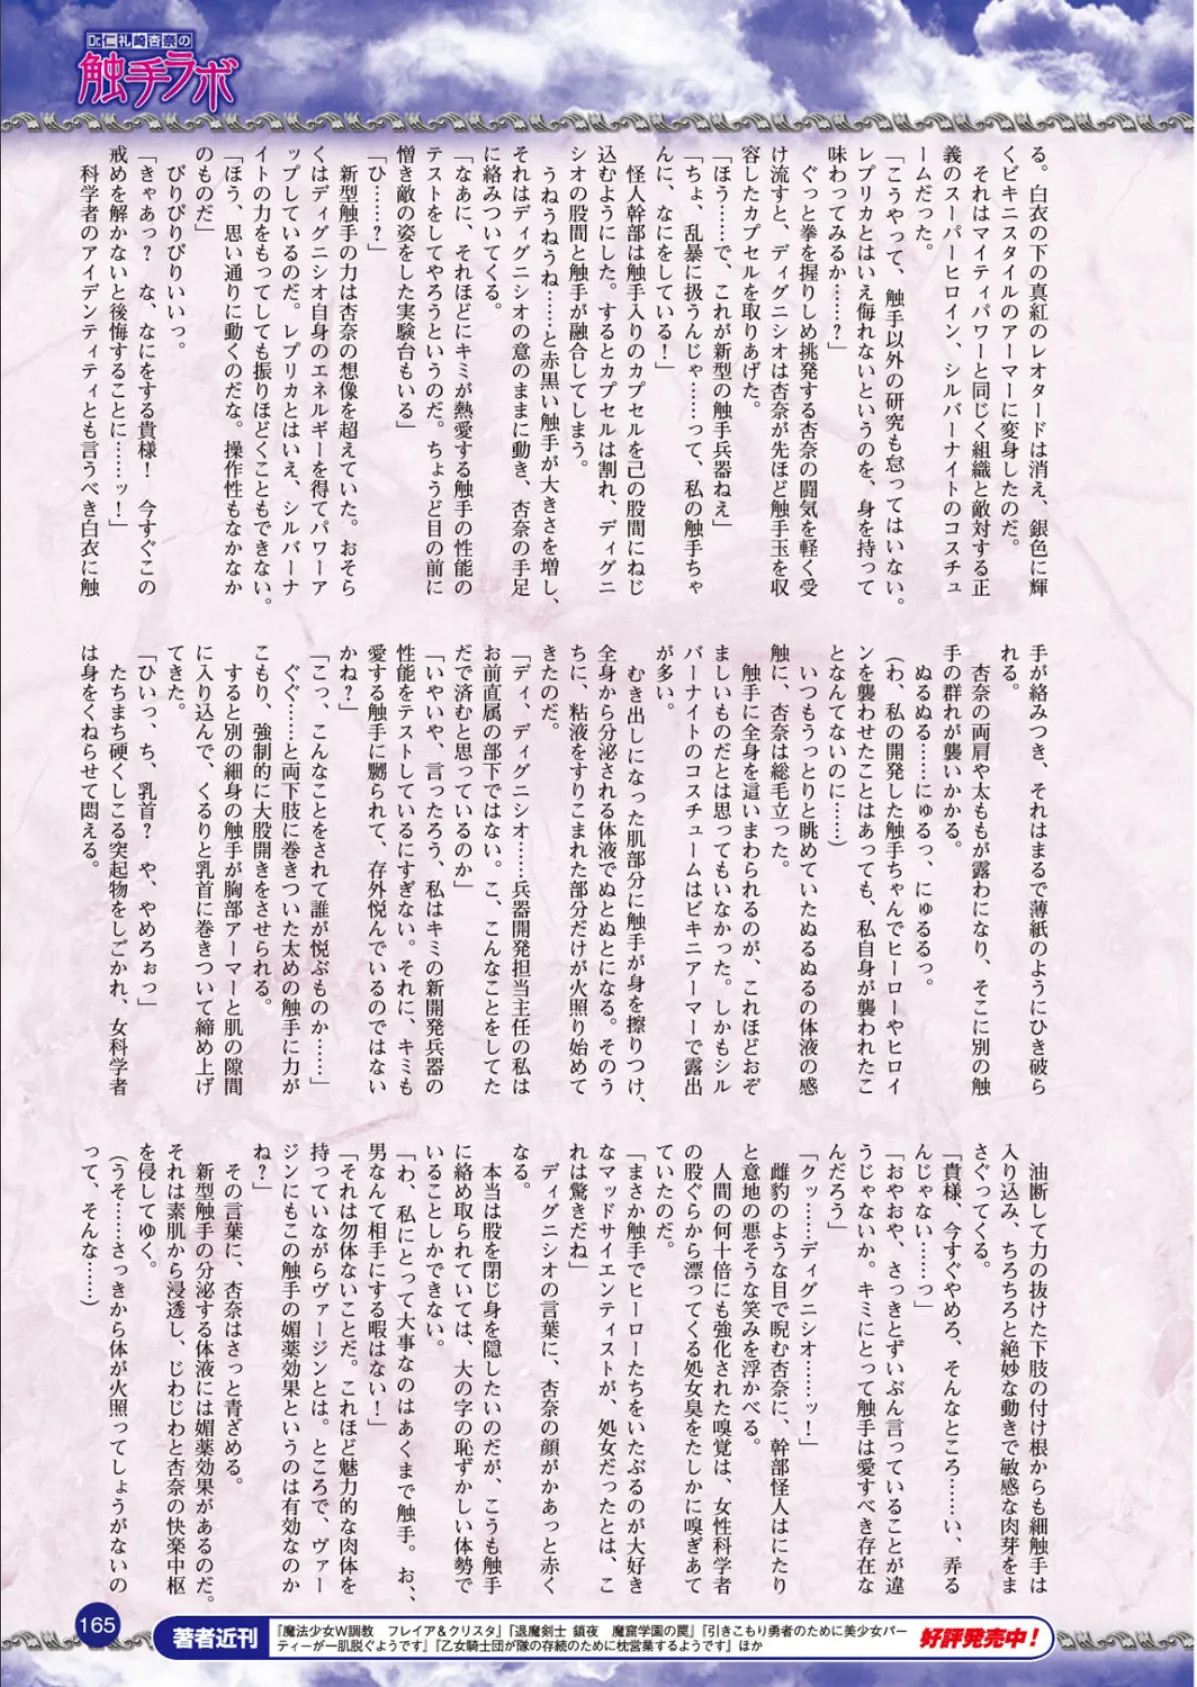 Dr.仁礼崎杏奈の
触手ラボ
る。白衣の下の真紅のレオタードは消え、銀色に輝
くビキニスタイルのアーマーに変身したのだ。
それはマイティパワーと同じく組織と敵対する正
義のスーパーヒロイン、シルバーナイトのコスチュ
ームだった。
「こうやって、触手以外の研究も怠ってはいない。
レプリカとはいえ侮れないというのを、身を持って
味わってみるか……?」
ぐっと拳を握りしめ挑発する杏奈の闘気を軽く受
け流すと、ディグニシオは杏奈が先ほど触手玉を収
容したカプセルを取りあげた。
「ほう……で、これが新型の触手兵器ねえ」
「ちょ、乱暴に扱うんじゃ……って、私の触手ちゃ
んに、なにをしている!」
怪人幹部は触手入りのカプセルを己の股間にねじ
込むようにした。するとカプセルは割れ、ディグニ
シオの股間と触手が融合してしまう。
うねうねうね……と赤黒い触手が大きさを増し、
それはディグニシオの意のままに動き、杏奈の手足
に絡みついてくる。
「なあに、それほどにキミが熱愛する触手の性能の
テストをしてやろうというのだ。ちょうど目の前に
憎き敵の姿をした実験台もいる」
「ひ……?」
新型触手の力は杏奈の想像を超えていた。おそら
くはディグニシオ自身のエネルギーを得てパワーア
ップしているのだ。レプリカとはいえ、シルバーナ
イトの力をもってしても振りほどくこともできない。
「ほう、思い通りに動くのだな。操作性もなかなか
のものだ」
びりびりびりいいっ。
「きゃあっ? な、なにをする貴様! 今すぐこの
戒めを解かないと後悔することに……ッ!」
科学者のアイデンティティとも言うべき白衣に触
手が絡みつき、それはまるで薄紙のようにひき破ら
れる。
杏奈の両肩や太ももが露わになり、そこに別の触
手の群れが襲いかかる。
ぬるぬる……にゅるっ、にゅるるっ。
(わ、私の開発した触手ちゃんでヒーローやヒロイ
ンを襲わせたことはあっても、私自身が襲われたこ
となんてないのに……)
いつもうっとりと眺めていたぬるぬるの体液の感
触に、杏奈は総毛立った。
触手に全身を這いまわられるのが、これほどおぞ
ましいものだとは思ってもいなかった。しかもシル
バーナイトのコスチュームはビキニアーマーで露出
が多い。
むき出しになった肌部分に触手が身を擦りつけ、
全身から分泌される体液でぬとぬとになる。そのう
ちに、粘液をすりこまれた部分だけが火照り始めて
きたのだ。
「ディ、ディグニシオ……兵器開発担当主任の私は
お前直属の部下ではない。こ、こんなことをしてた
だで済むと思っているのか」
「いやいや、言ったろう、私はキミの新開発兵器の
性能をテストしているにすぎない。それに、キミも
愛する触手に嬲られて、存外悦んでいるのではない
かね?」
「こっ、こんなことをされて誰が悦ぶものか……」
ぐぐ……と両下肢に巻きついた太めの触手に力が
こもり、強制的に大股開きをさせられる。
すると別の細身の触手が胸部アーマーと肌の隙間
に入り込んで、くるりと乳首に巻きついて締め上げ
てきた。
「ひいっ、ち、乳首? や、やめろぉっ」
たちまち硬くしこる突起物をしごかれ、女科学者
は身をくねらせて悶える。
油断して力の抜けた下肢の付け根からも細触手は
入り込み、ちろちろと絶妙な動きで敏感な肉芽をま
さぐってくる。
「貴様、今すぐやめろ、そんなところ……い、弄る
んじゃない……っ」
「おやおや、さっきとずいぶん言っていることが違
うじゃないか。キミにとって触手は愛すべき存在な
んだろう」
「クッ……ディグニシオ……ッ!」
雌豹のような目で睨む杏奈に、幹部怪人はにたり
と意地の悪そうな笑みを浮かべる。
人間の何十倍にも強化された嗅覚は、女性科学者
の股ぐらから漂ってくる処女臭をたしかに嗅ぎあて
ていたのだ。
「まさか触手でヒーローたちをいたぶるのが大好き
なマッドサイエンティストが、処女だったとは、こ
れは驚きだね」
ディグニシオの言葉に、杏奈の顔がかあっと赤く
なる。
本当は股を閉じ身を隠したいのだが、こうも触手
に絡め取られていては、大の字の恥ずかしい体勢で
いることしかできない。
「わ、私にとって大事なのはあくまで触手。お、
男なんて相手にする暇はない!」
「それは勿体ないことだ。これほど魅力的な肉体を
持っていながらヴァージンとは。ところで、ヴァー
ジンにもこの触手の媚薬効果というのは有効なのか
ね?」
その言葉に、杏奈はさっと青ざめる。
新型触手の分泌する体液には媚薬効果があるのだ。
それは素肌から浸透し、じわじわと杏奈の快楽中枢
を侵してゆく。
(うそ……さっきから体が火照ってしょうがないの
って、そんな……)
165
著者近刊
『魔法少女W調教 フレイア&クリスタ』『退魔剣士 鎖夜 魔窟学園の罠』『引きこもり勇者のために美少女パー
ティーが一肌脱ぐようです』『乙女騎士団が隊の存続のために枕営業するようです』ほか
好評発売中!